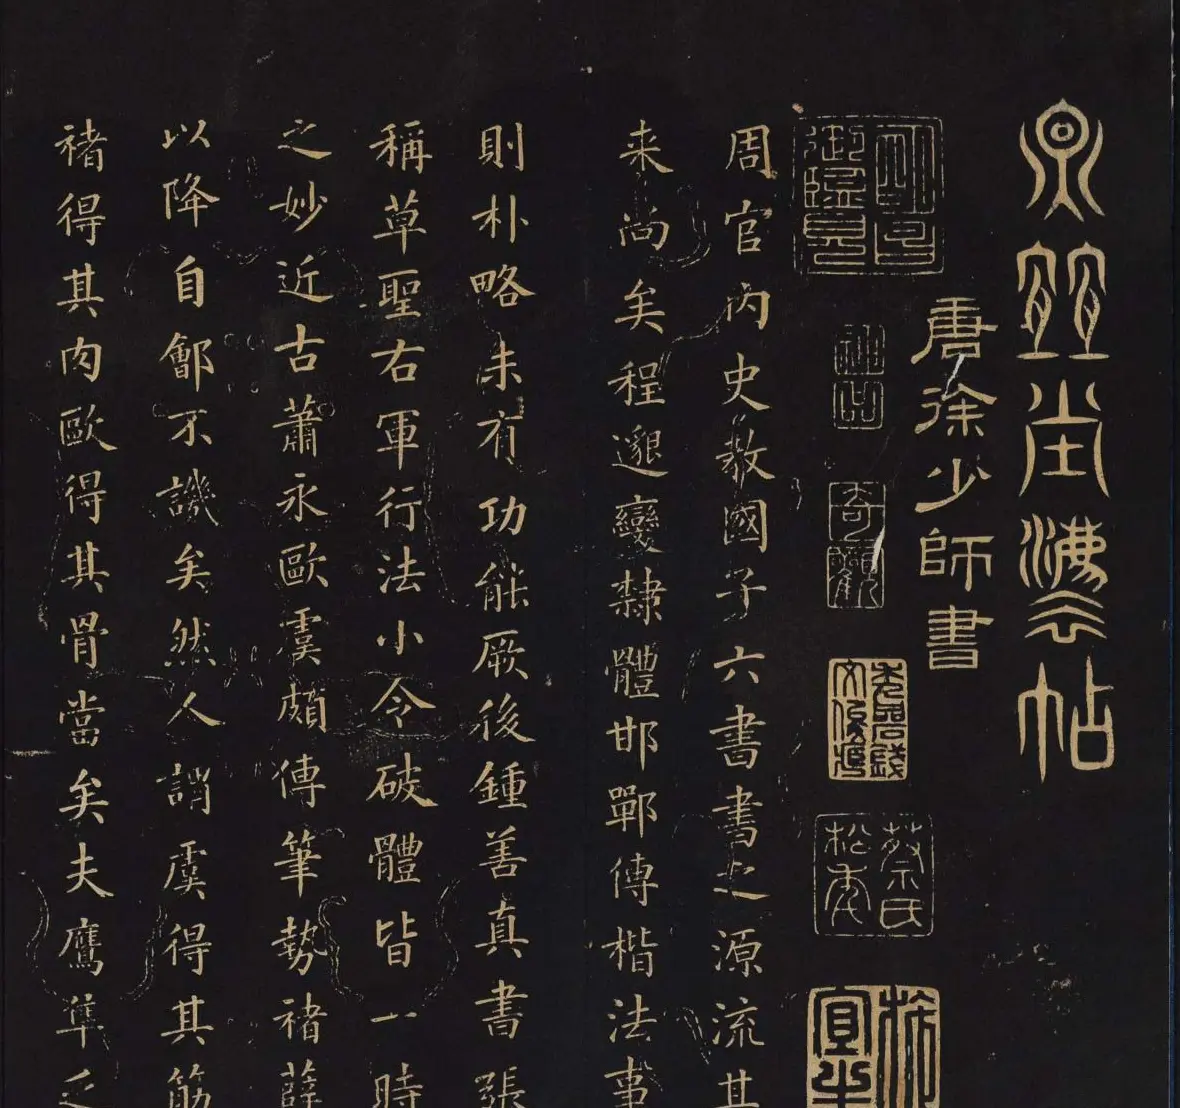 唐徐少師書
蔡氏松年
周官内史教國子六書書之源流其
来尚矣程邈變隸體邯鄲傳楷法事
則朴略未有功能厥後鍾善真書張
稱草聖右軍行法小令破體皆一時
之妙近古蕭永歐虞頗傳筆勢褚薛
以降自鄶不譏矣然人謂虞得其筋
褚得其肉歐得其骨當矣夫鷹隼乏